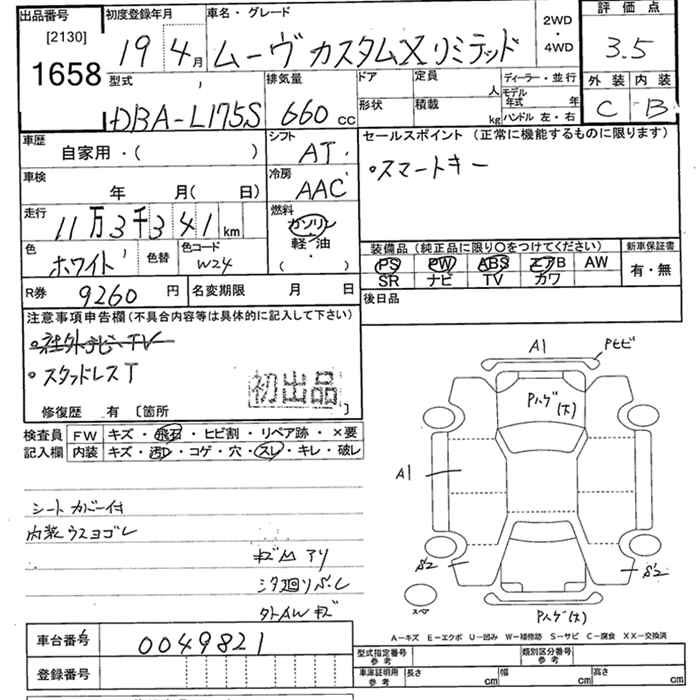 出品番号 初度登録年月 車名・グレード 2WD・4WD 評価点
[2130]
1658 19 4月 ムーヴ カスタムX リミテッド 3.5
型式 排気量 ドア 定員 人 ディーラー・並行 外装 内装
DBA-L175S 660cc 形状 積載 kg モデル年式 年 C B
ハンドル 左・右
車歴 シフト セールスポイント(正常に機能するものに限ります)
自家用・( ) AT
車検 冷房 ・スマートキー
年 月(日) AAC
走行 燃料
11万3千341km ガソリン
軽・油
・( )
色 色替 色コード 装備品(純正品に限り○をつけてください) 新車保証書
ホワイト W24 PS PW ABS エアB AW 有・無
SR ナビ TV カワ
R券 9260円 名変期限 月 日 後日品
注意事項申告欄(不具合内容等は具体的に記入して下さい)
・社外ナビ・TV
・スタッドレスT
初出品
修復歴 有 〔箇所 〕
検査員 FW キズ・飛石・ヒビ割・リペア跡・×要
記入欄 内装 キズ・汚レ・コゲ・穴・スレ・キレ・破レ
シートカバー付
内装ウスヨゴレ
キズ凹アリ
外AWキズ
A1 Pヒビ
Pハゲ(大)
A1
S2 S2
スペア
Pハゲ(大)
A-キズ E-エクボ U-凹み W-補修跡 S-サビ C-腐食 XX-交換済
車台番号 0049821 型式指定番号 参考 類別区分番号 参考
登録番号 車庫証明用 参考 長さ cm 幅 cm 高さ cm